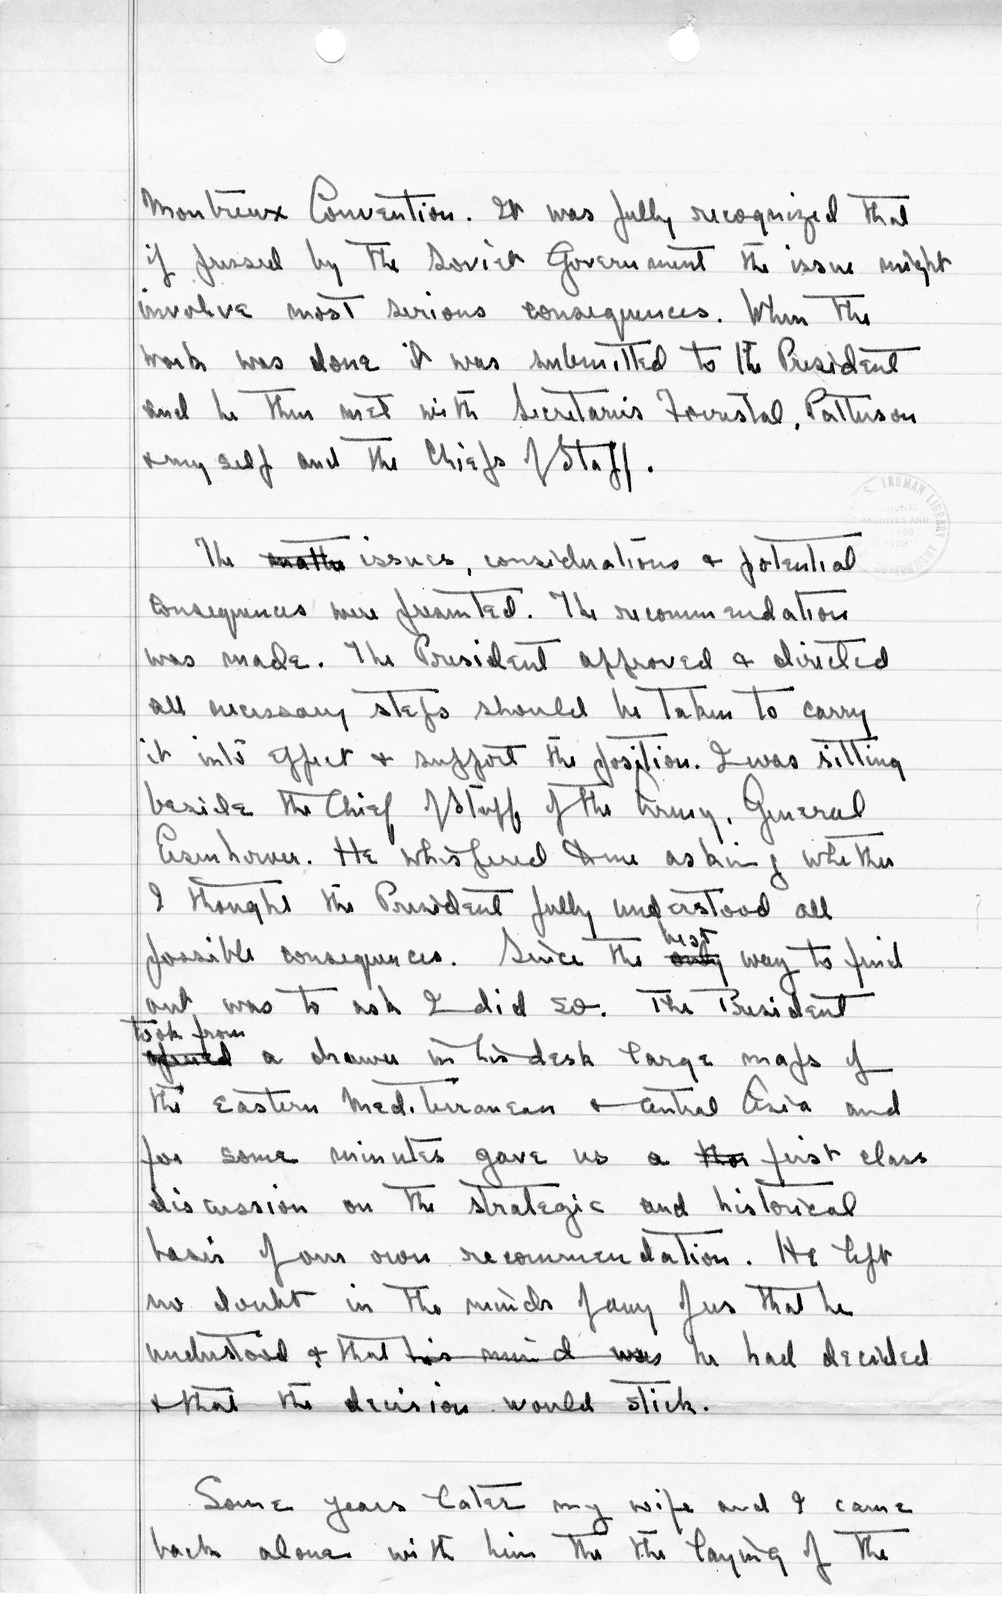 Montreux Convention. It was fully recognized that
if pressed by the Soviet Government the issue might
involve most serious consequences. When the
work was done it was submitted to the President
and he then met with Secretaries Forrestal, Patterson
& myself and the Chiefs of Staff.
S. TRUMAN LIBRARY
The matter issues, considerations & potential
consequences were presented. The recommendation
was made. The President approved & directed
all necessary steps should be taken to carry
it into effect & support the position. I was sitting
beside the Chief of Staff of the Army, General
Eisenhower. He whispered to me asking whether
I thought the President fully understood all
possible consequences. Since the only best way to find
out was to ask I did so. The President
opened took from a drawer in his desk large maps of
the eastern Mediterranean & central Asia and
for some minutes gave us a first class
discussion on the strategic and historical
basis of our own recommendation. He left
no doubt in the minds of any of us that he
understood & that his mind was he had decided
& that the decision would stick.
Some years later my wife and I came
back alone with him the the laying of the